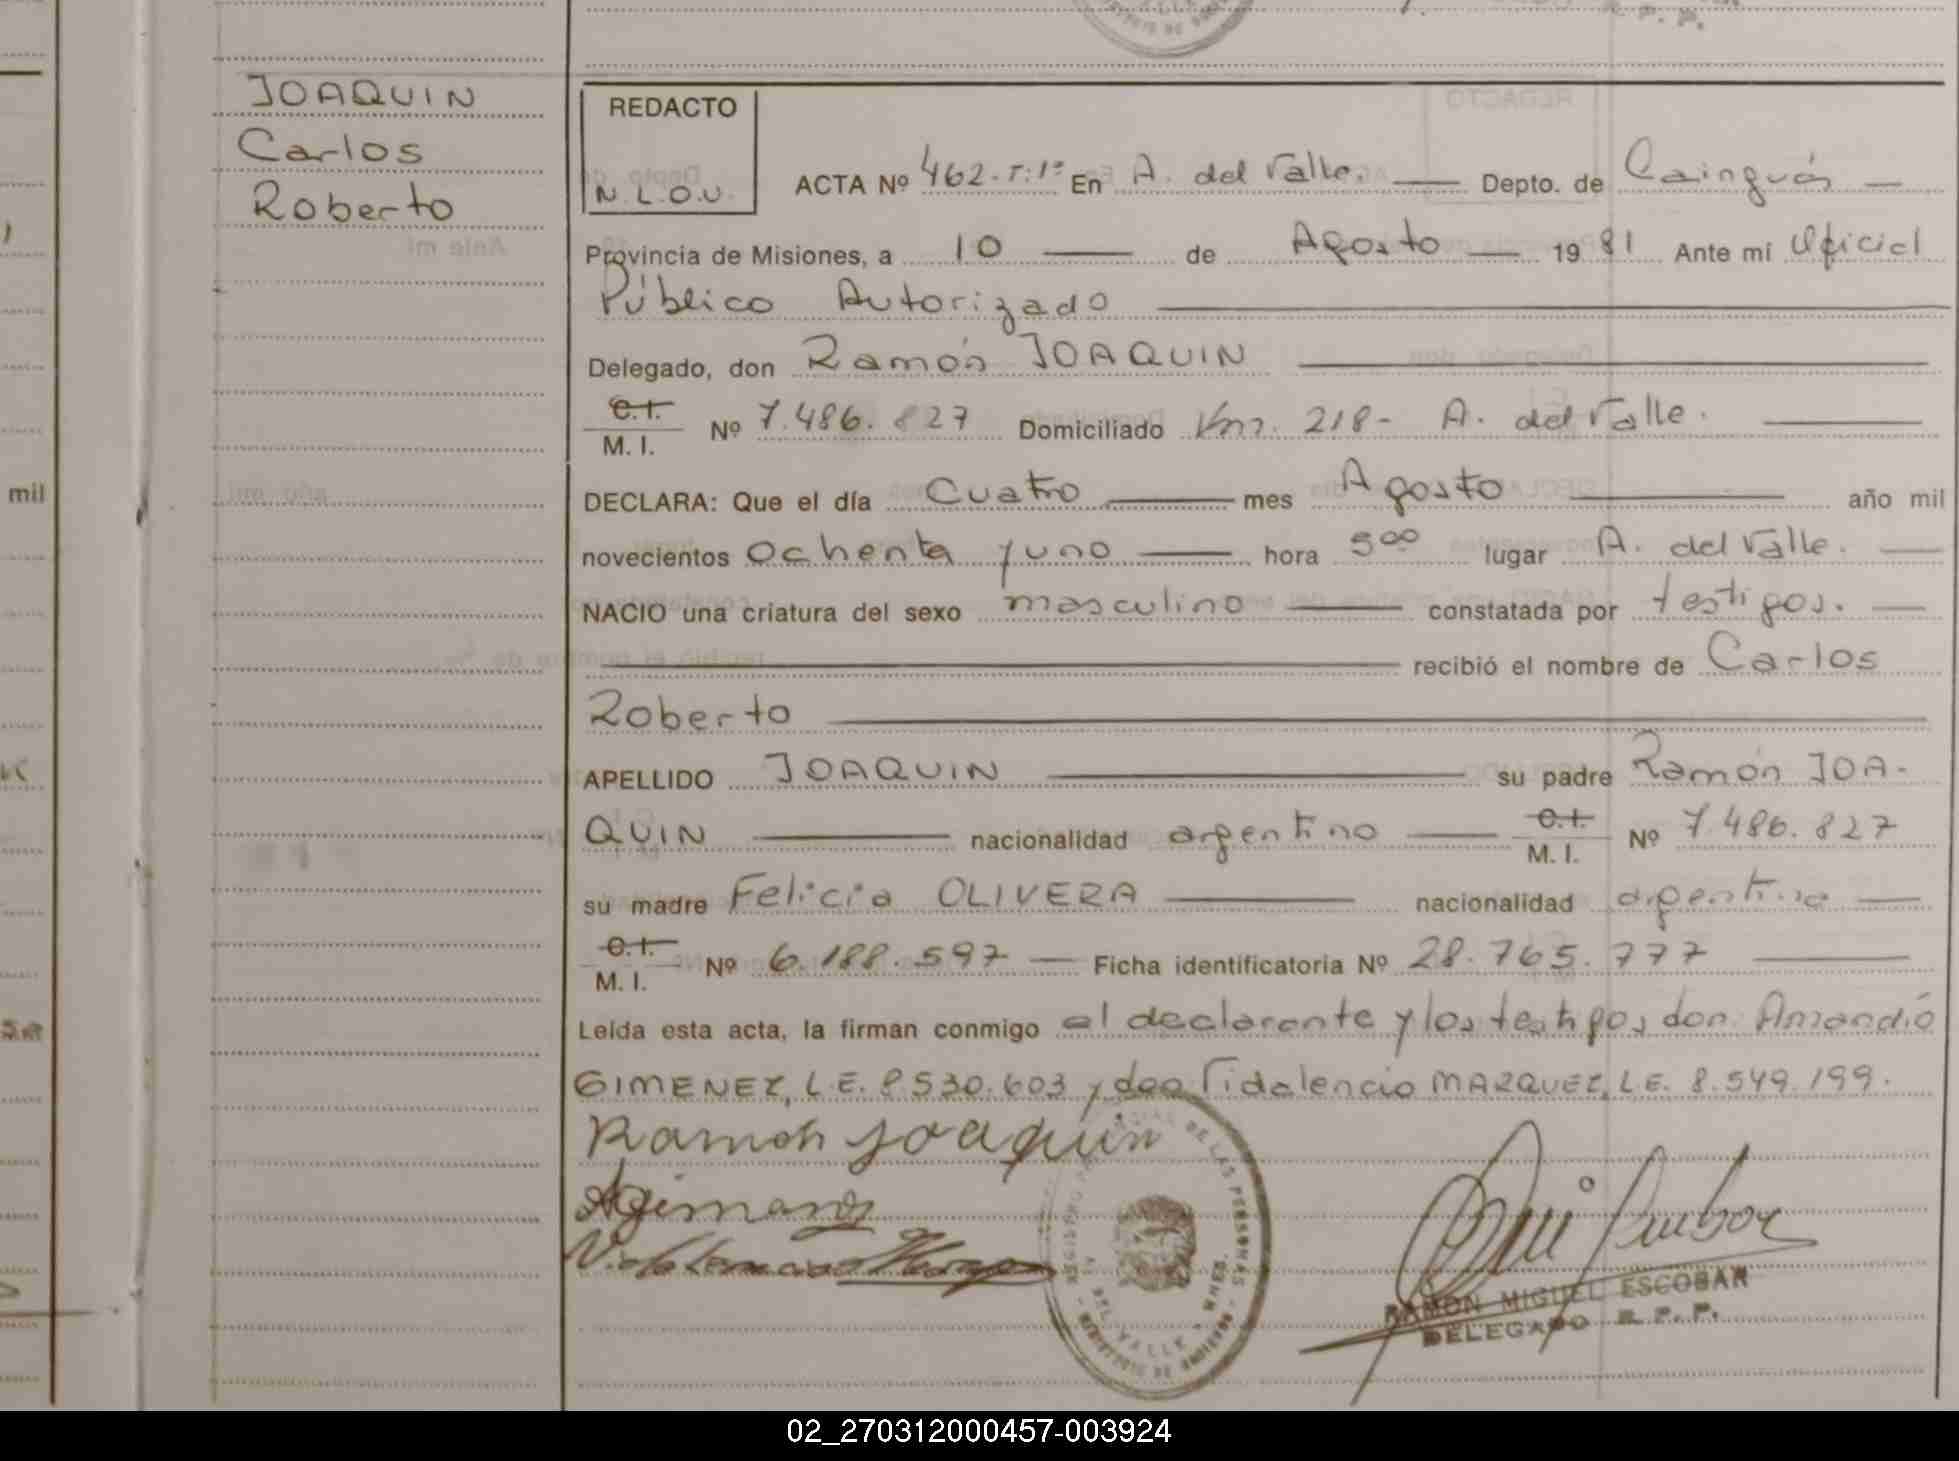 JOAQUIN
Carlos
Roberto
R. P. P.
REDACTO
N.L.O.U.
ACTA Nº 462-T:1º En A. del Valle. Depto. de Cainguás
Provincia de Misiones, a 10 de Agosto 1981 Ante mi Oficial
Público Autorizado
Delegado, don Ramón JOAQUIN
C.I.
M. I. Nº 7.486.827 Domiciliado Km. 218- A. del Valle.
DECLARA: Que el día Cuatro mes Agosto año mil
novecientos ochenta y uno hora 5ºº lugar A. del Valle.
NACIO una criatura del sexo masculino constatada por testigos.
recibió el nombre de Carlos
Roberto
APELLIDO JOAQUIN su padre Ramón JOA-
QUIN nacionalidad argentino C.I. M. I. Nº 7.486.827
su madre Felicia OLIVERA nacionalidad argentina
C.I.
M. I. Nº 6.188.597 Ficha identificatoria Nº 28.765.777
Leída esta acta, la firman conmigo el declarante y los testigos don Amandió
GIMENEZ, L.E. 8.530.603 y don Vidalencio MARQUEZ, L.E. 8.549.199.
Ramon Joaquin
RAMON MIGUEL ESCOBAR
DELEGADO R. P. P.
DE LAS PERSONAS
DEL VALLE
mil
02_270312000457-003924